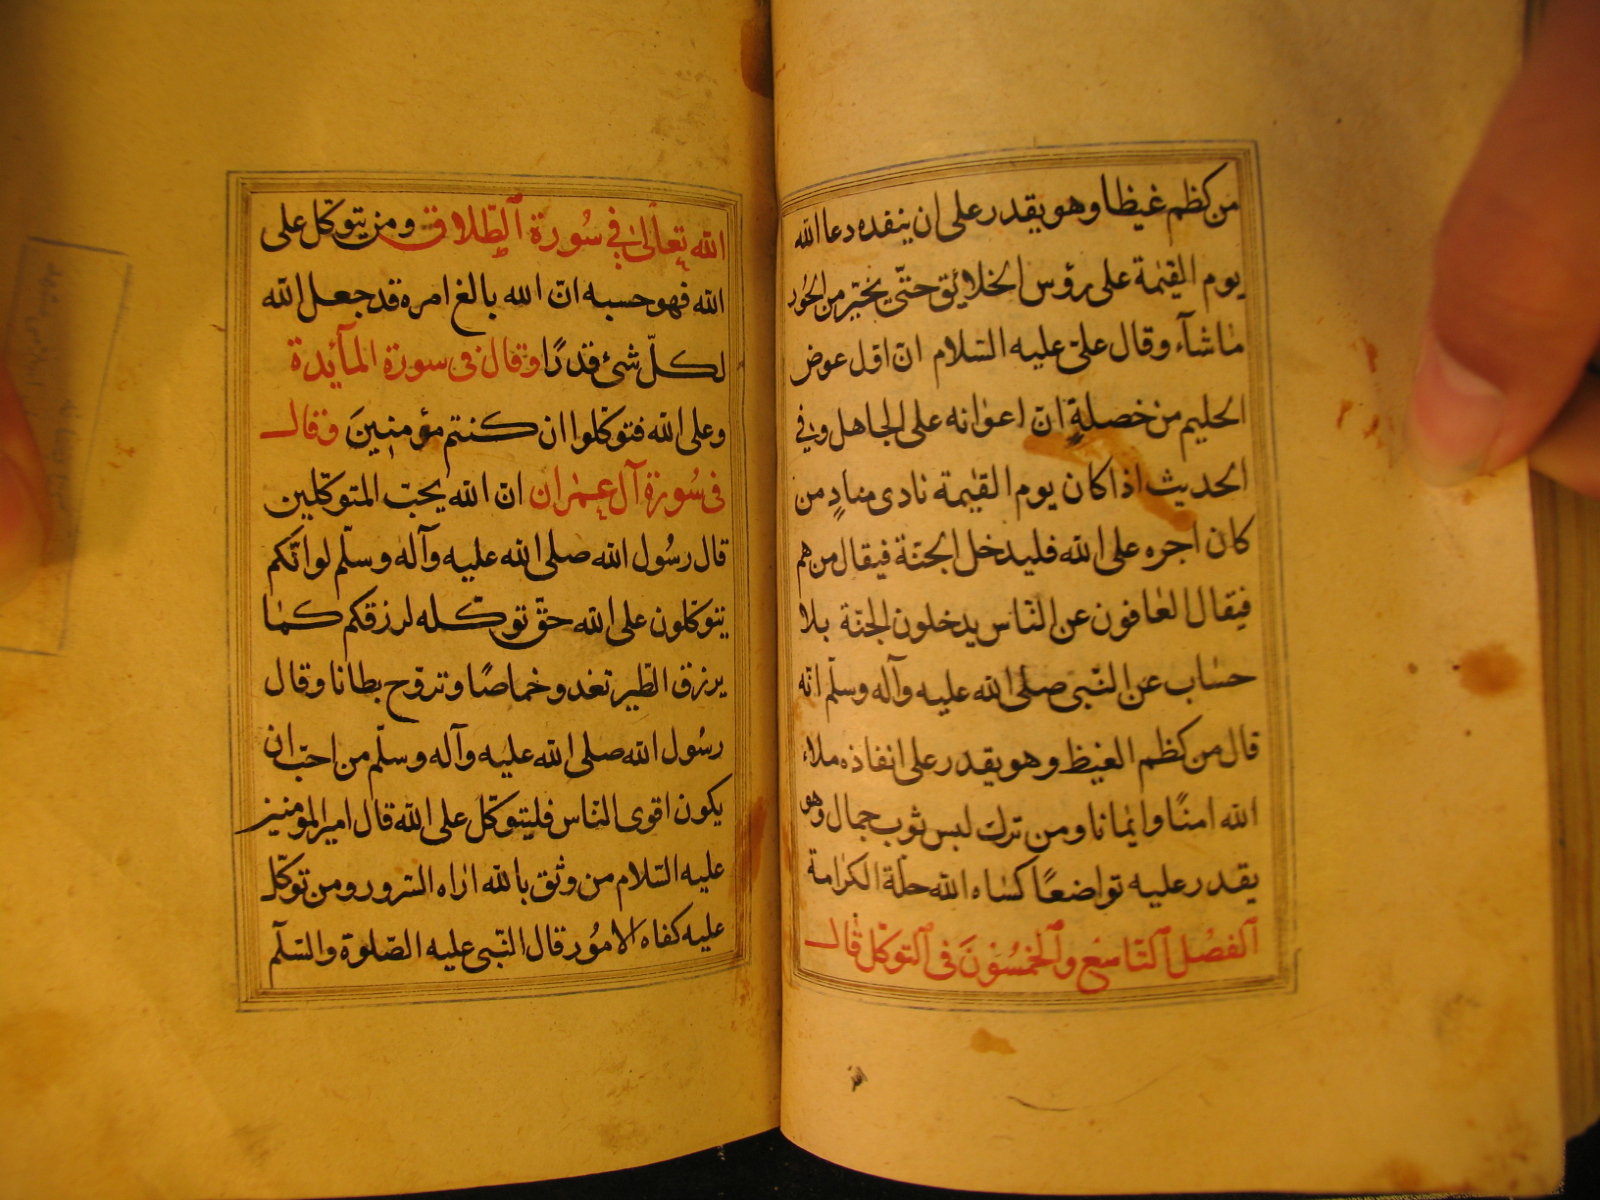 من كظم غيظا وهو يقدر على ان ينفده دعا الله
يوم القيٰمة على رؤس الخلائق حتّى يختر من الحُور
ماشآء وقال علىّ عليه السّلام انّ اقل عوض
الحليم من خصلةٍ انّ اعوانه على الجاهل وفي
الحديث اذا كان يوم القيٰمة نادى منادٍ من
كان اجره على الله فليدخل الجنّة فيقال من هم
فيقال العافون عن النّاس يدخلون الجنّة بلا
حساب عن النّبى صلى الله عليه وآله وسلّم انّه
قال من كظم الغيظ وهو يقدر على انفاذه ملاء
الله امنًا وايمانا ومن ترك لبس ثوب جمال وهو
يقدر عليه تواضعًا كساه الله حلّة الكرامة
الفصل التّاسع والخمسُون فى التوكّل قال
الله
الله تعالىٰ في سُورة الطّلاق ومن يتوكّل على
الله فهو حسبه انّ الله بالغ امره قد جعل الله
لكلّ شئ قدرًا وقال فى سورة المآئدة
وعلى الله فتوكّلوا ان كنتم مؤمنينَ وقال
فى سُورة آل عمران انّ الله يحبّ المتوكّلين
قال رسُول الله صلى الله عليه وآله وسلّم لو انّكم
تتوكّلون على الله حقّ توكّله لرزقكم كما
يرزق الطّير تغدو خماصًا وتروّح بطانا وقال
رسُول الله صلى الله عليه وآله وسلّم من احبّ ان
يكون اقوى النّاس فليتوكّل على الله قال امير المؤمنين
عليه السّلام من وثق بالله اراه السّرور ومن توكّل
عليه كفاه الامُور قال النّبى عليه الصّلوة والسّلم